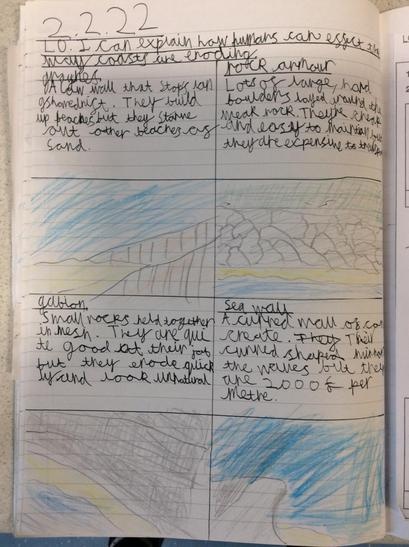 2.2.22
LO: I can explain how humans can effect the
way coasts are eroding.
groynes
A low wall that stops
They build
up beaches but they starve
out other beaches of
sand.
rock armour
Lots of large, hard
boulders layed around the
weak rock. They're cheap
and easy to maintain but
they are expensive to
gabion
Small rocks held together
in mesh. They are qui
te good at their job
but they erode quick
ly and look unnatural
Sea wall
A curved wall of con
create. They Their
curved shape
the waves but they
are 2000£ per
metre.